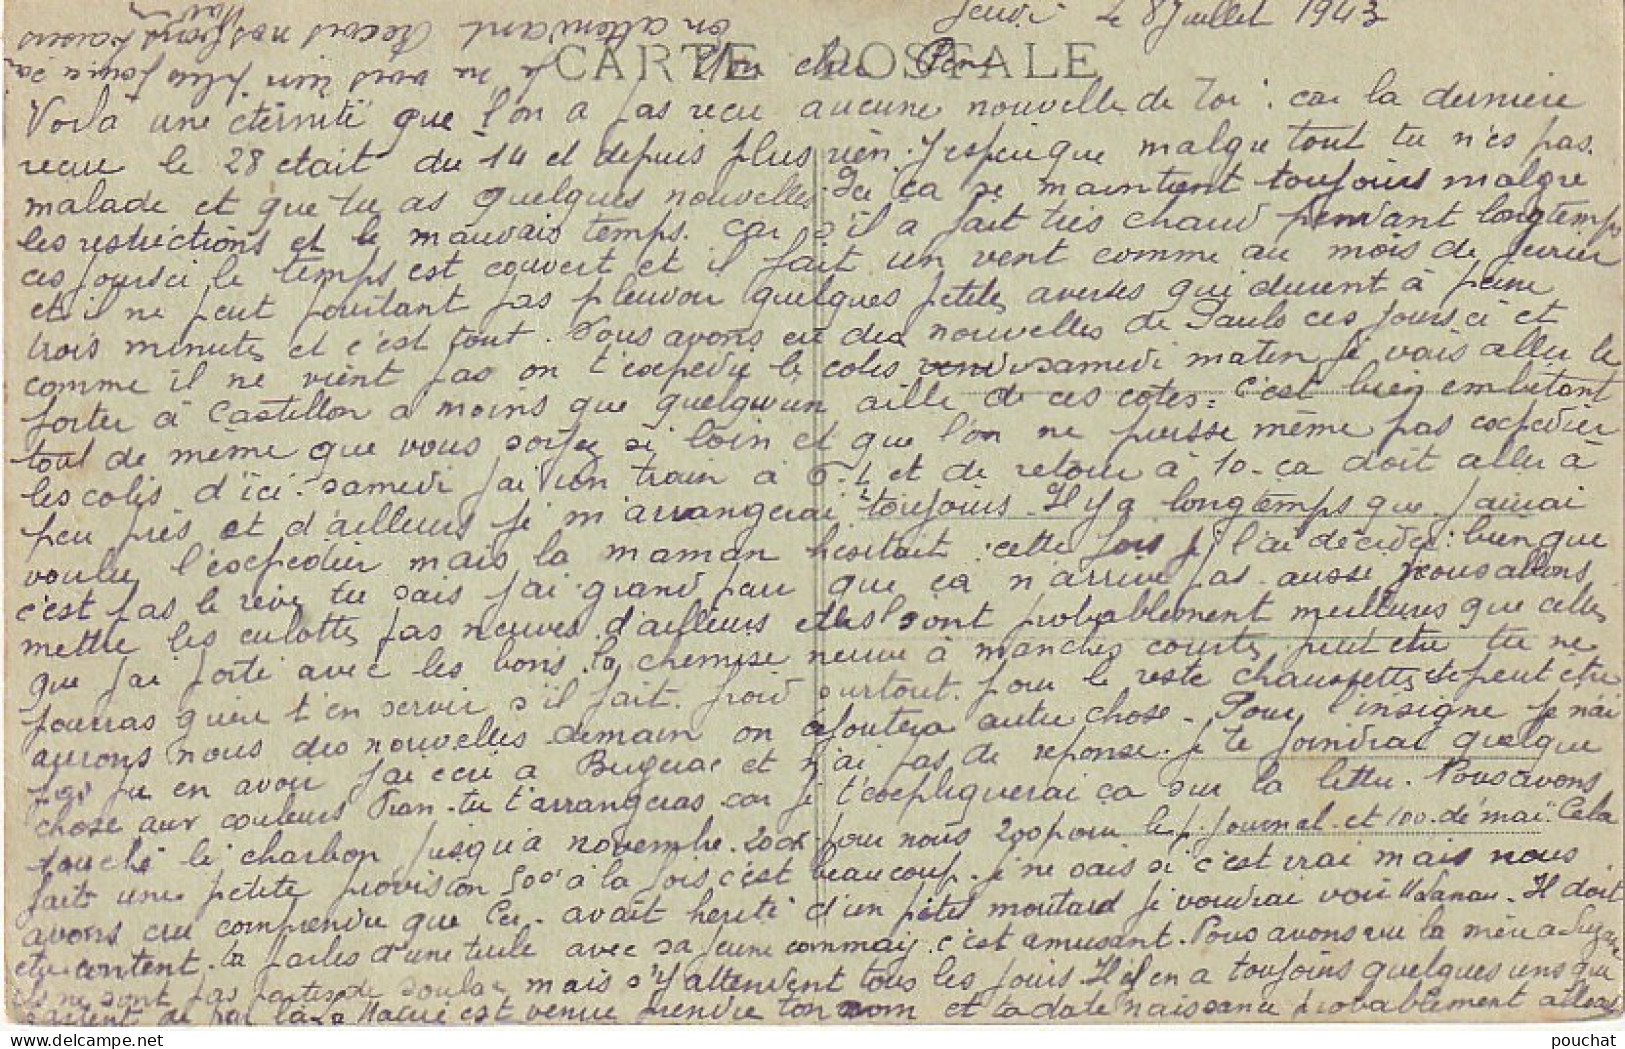 Jeudi le 8 Juillet 1943
CARTE POSTALE
Mon cher Pere
Voilà une éternité que l'on a pas recu aucune nouvelle de Toi : car la derniere
recue le 28 etait du 14 et depuis plus rien. J'espere que malgre tout tu n'es pas
malade et que tu as quelques nouvelles. Ici ça se maintient toujours malgre
les restrictions et le mauvais temps. Car s'il a fait très chaud pendant longtemps
ces jours ci le temps est couvert et il fait un vent comme au mois de fevrier
et il ne peut pourtant pas pleuvoir quelques petites averses qui durent à peine
trois minutes et c'est tout. Nous avons eu des nouvelles de Paulo ces jours ci et
comme il ne vient pas on t'expedie le colis samedi matin je vais aller le
porter à Castillon a moins que quelqu'un aille de ces cotes : c'est bien embêtant
tout de même que vous soyez si loin et que l'on ne puisse même pas expedier
les colis d'ici. samedi j'ai un train à 6 et de retour à 10 - ça doit aller à
peu près et d'ailleurs je m'arrangerai toujours. Il y a longtemps que j'aurai
voulu l'expedier mais la maman hesitait : cette fois je l'ai décidée : bien que
c'est pas le reve tu sais j'ai grand peur que ça n'arrive pas. aussi nous allons
mettre les culottes pas neuves d'ailleurs elles sont probablement meilleures que celles
que j'ai porté avec les bons. la chemise neuve à manches courtes peut etre tu ne
pourras guere t'en servir s'il fait froid surtout. pour le reste chaussettes et peut etre
aurons nous des nouvelles demain on ajoutera autre chose - Pour l'insigne je n'ai
pas pu en avoir j'ai ecri a Bergerac et n'ai pas de reponse. je te joindrai quelque
chose aux couleurs tu t'arrangeras car je t'expliquerai ça sur la lettre. Nous avons
touché le charbon jusqu'à novembre. 200k pour nous 200 pour le p. journal et 100 de mai. Cela
fait une petite provision 500 à la fois c'est beaucoup. je ne sais si c'est vrai mais nous
avons cru comprendre que avait herité d'un petit moutard je voudrai voir Il doit
etre content. tu parles d'une tuile avec sa jeune c'est amusant. Nous avons vu la mère a
ils ne sont pas partis de Soulac mais s'y attendent tous les jours. Il en a toujours quelques uns qui
partent de par là. Le Maire est venu prendre ton nom et ta date naissance probablement
Je ne vois rien plus pour ca
en attendant Recois nos bons baisers
pouchat